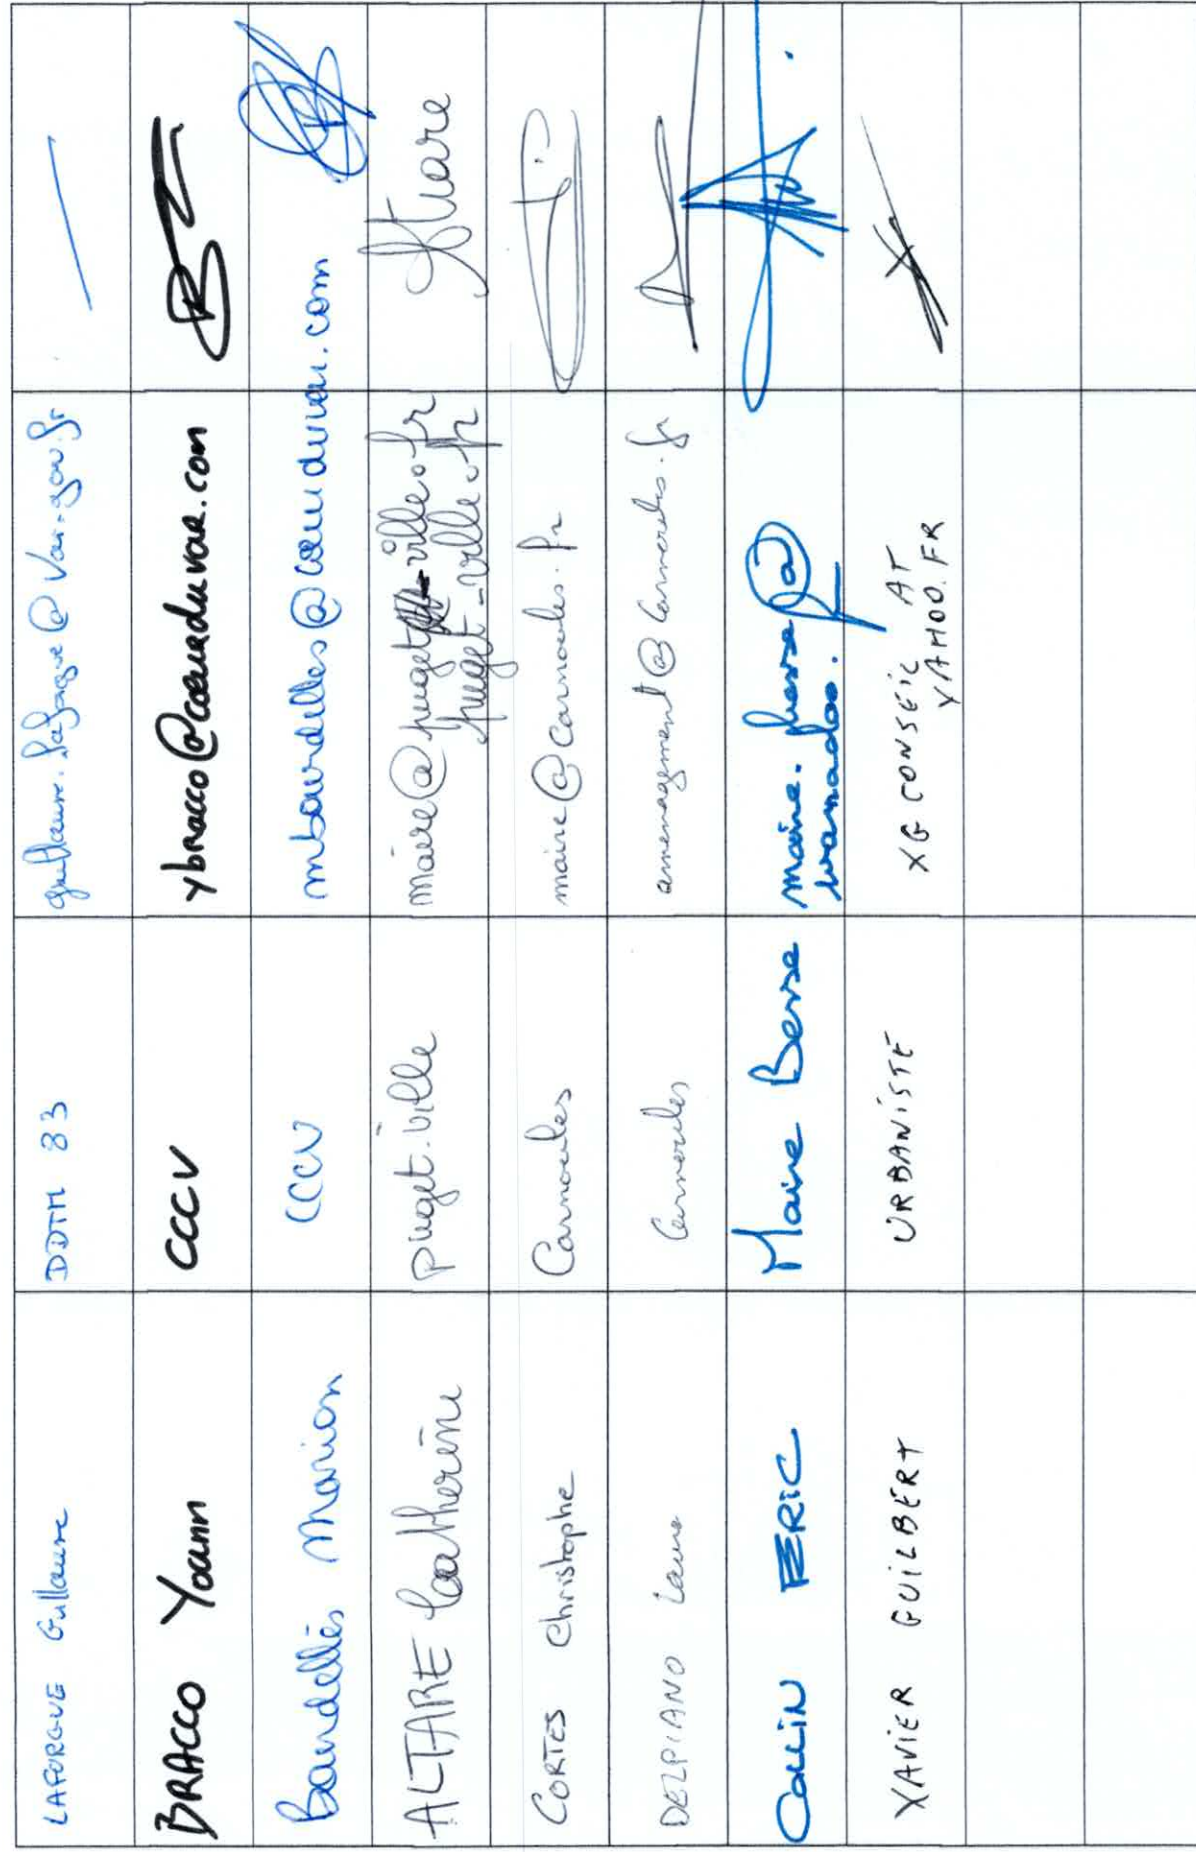 LAFORGUE Guillaume DDTM 83 guillaume.laforgue@var.gouv.fr
BRACCO Yoann CCCV ybracco@coeurduvar.com
Bourdelles Marion CCCV mbourdelles@coeurduvar.com
ALTARE Catherine puget.ville maire@puget-ville.fr Altare
puget-ville.fr
CORTES Christophe Carnoules maire@carnoules.fr
DELPIANO Laura Carnoules amenagement@carnoules.fr
COLLIN ERIC Maire Besse maire.besse@
wanadoo.
XAVIER GUILBERT URBANISTE XG CONSEIL AT
YAHOO.FR